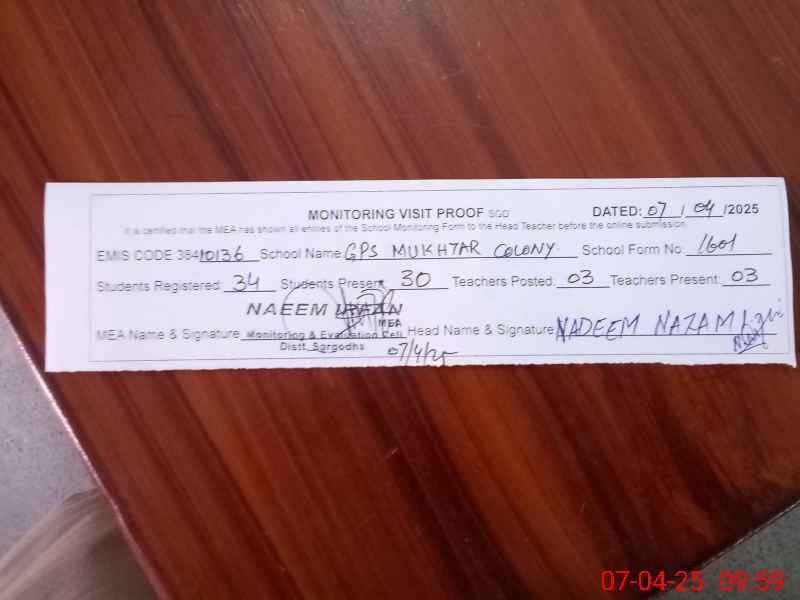 MONITORING VISIT PROOF SGD DATED: 07/04/2025
It is certified that the MEA has shown all entries of the School Monitoring Form to the Head Teacher before the online submission
EMIS CODE 35410136 School Name GPS MUKHTAR COLONY. School Form No: 1601
Students Registered: 34 Students Present 30 Teachers Posted: 03 Teachers Present: 03
NAEEM
MEA
MEA Name & Signature Monitoring & Evaluation Cell Head Name & Signature NADEEM NAZAM
Distt. Sargodha
07/4/25
07-04-25 09:59